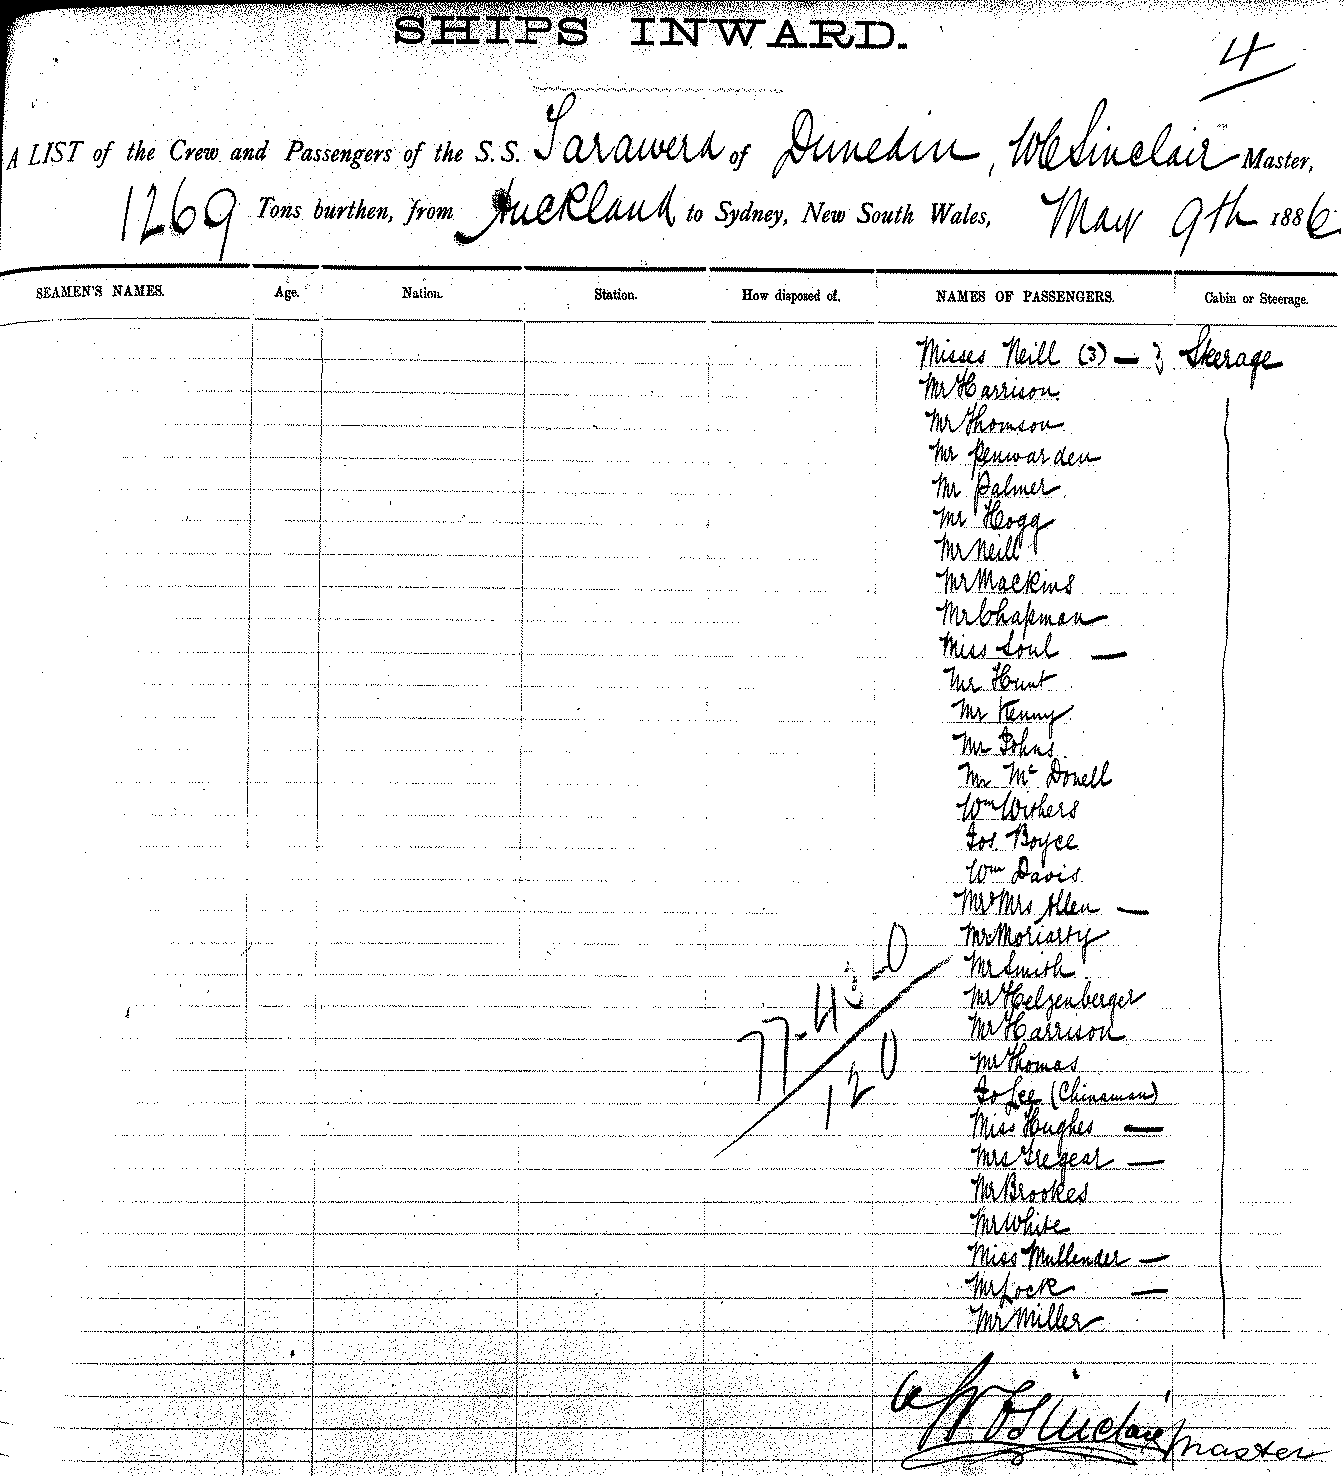 SHIPS INWARD.
4
A LIST of the Crew and Passengers of the S.S. Tarawera of Dunedin, Sinclair Master,
1269 Tons burthen, from Auckland to Sydney, New South Wales, May 9th 1886
SEAMEN'S NAMES. Age. Nation. Station. How disposed of. NAMES OF PASSENGERS. Cabin or Steerage.
Misses Neill (3) — 3 Steerage
Mr Harrison
Mr Thomson
Mr Penwarden
Mr Palmer
Mr Hogg
Mr Neill
Mr Mackins
Mr Chapman
Miss Soul —
Mr Hunt
Mr Kenny
Mr Johns
Mr Mc Donell
Wm Withers
Jos. Boyce
Wm Davis
Mr & Mrs Allen —
Mr Moriarty
Mr Smith
Mr Helzenberger
Mr Harrison
Mr Thomas
Lee (Chinaman)
Miss Hughes —
Mrs Tregear —
Mr Brookes
Mr White
Miss Mullender —
Lock —
Mr Miller
77-43-0
120
Sinclair Master